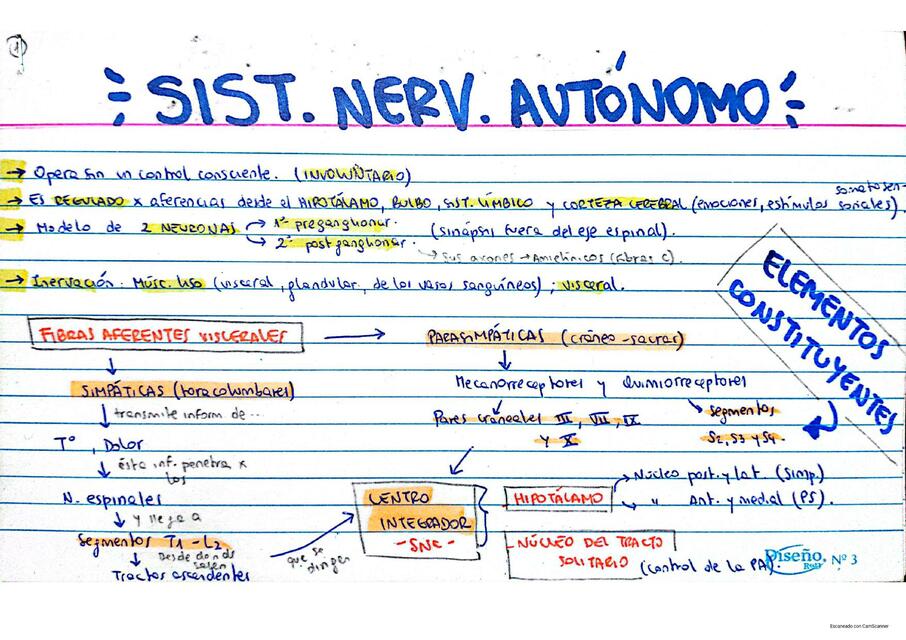 1
SIST. NERV. AUTÓNOMO
→ Opera sin un control consciente. (INVOLUNTARIO)
→ Es REGULADO x aferencias desde el HIPOTÁLAMO, BULBO, SIST. LÍMBICO y CORTEZA CEREBRAL (emociones, estímulos somatosensoriales).
→ Modelo de 2 NEURONAS → 1º preganglionar.
→ 2º postganglionar. (sinápsis fuera del eje espinal).
→ Sus axones → Amielínicos (fibras C).
→ Inervación: Músc. liso (visceral, glandular, de los vasos sanguíneos); visceral.
ELEMENTOS
CONSTITUYENTES
FIBRAS AFERENTES VISCERALES → PARASIMPÁTICAS (cráneo-sacras)
SIMPÁTICAS (toracolumbares)
Mecanorreceptores y Quimiorreceptores
transmite inform de...
Pares craneales III, VII, IX
y X
Segmentos
S2, S3 y S4.
Tº, Dolor
ésta inf. penetra x
los
N. espinales
y llega a
Segmentos T1 - L2
Desde donde
salen
Tractos ascendentes
que se
dirigen
CENTRO
INTEGRADOR
- SNC -
HIPOTÁLAMO
Núcleo post. y lat. (Simp.)
" Ant. y medial (PS).
- NÚCLEO DEL TRACTO
SOLITARIO (control de la PA).
Diseño Nº 3
Escaneado con CamScanner